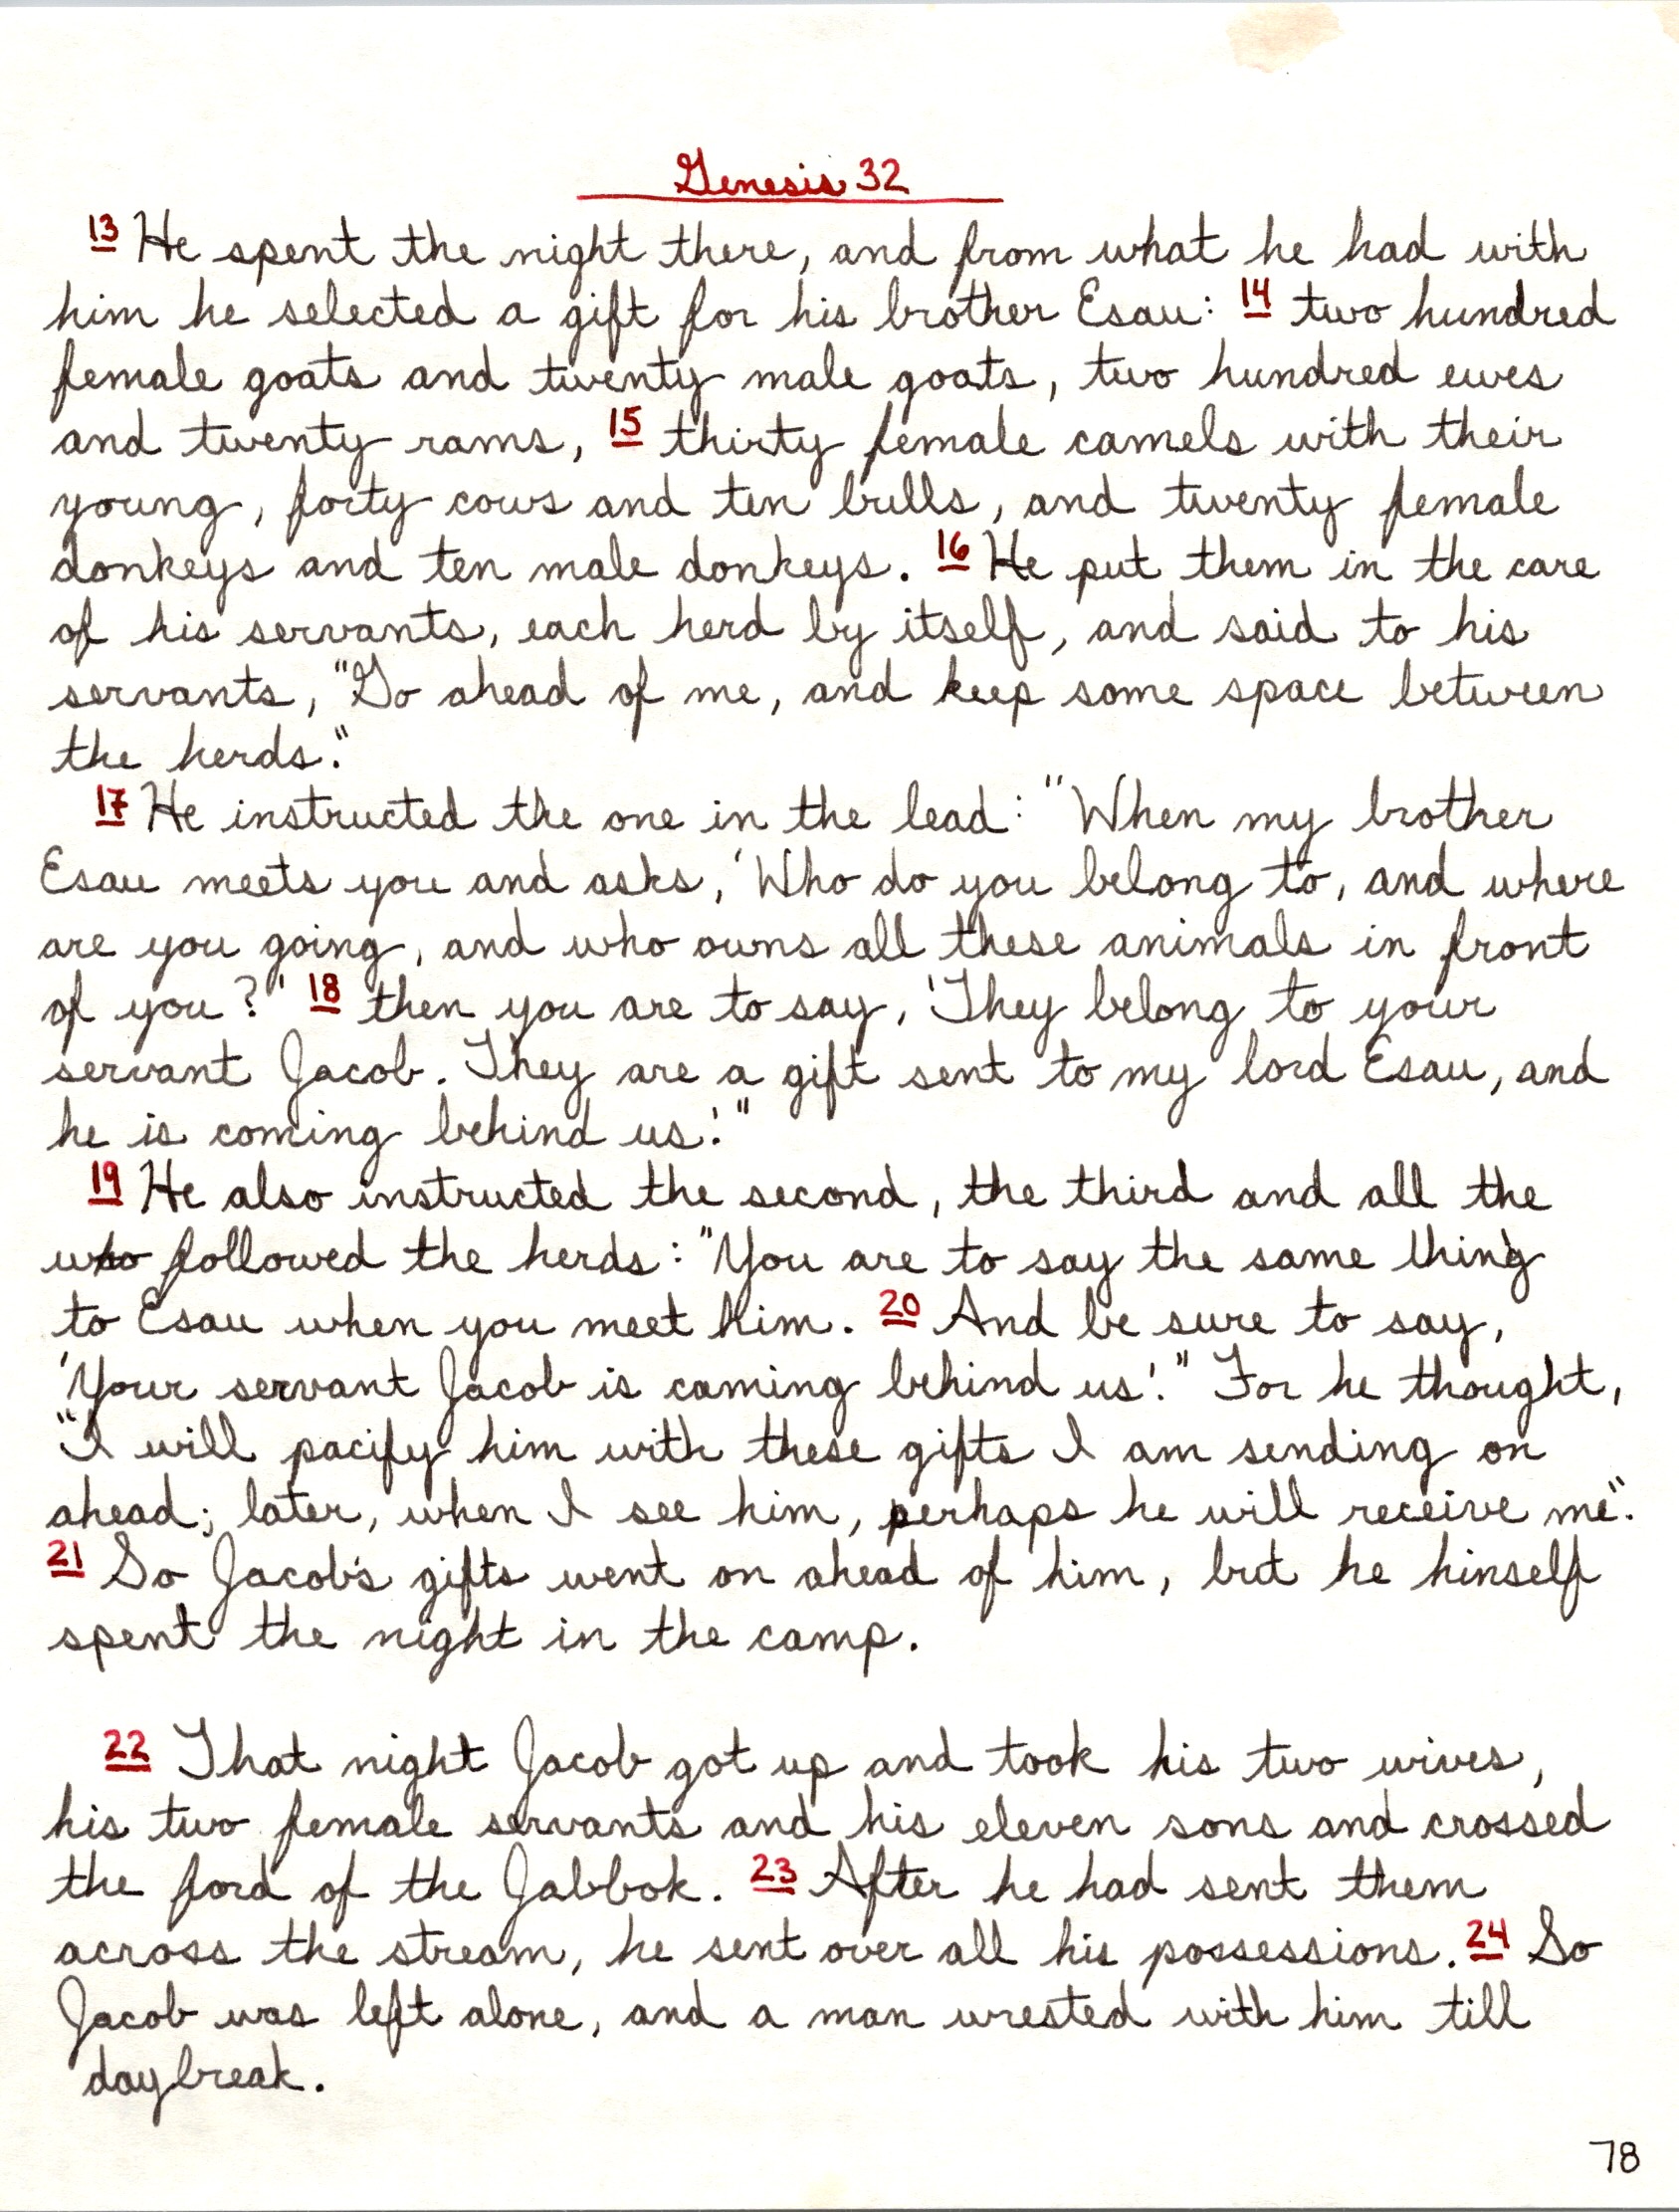 Genesis 32
13 He spent the night there, and from what he had with
him he selected a gift for his brother Esau: 14 two hundred
female goats and twenty male goats, two hundred ewes
and twenty rams, 15 thirty female camels with their
young, forty cows and ten bulls, and twenty female
donkeys and ten male donkeys. 16 He put them in the care
of his servants, each herd by itself, and said to his
servants, "Go ahead of me, and keep some space between
the herds."
17 He instructed the one in the lead: "When my brother
Esau meets you and asks, 'Who do you belong to, and where
are you going, and who owns all these animals in front
of you?' 18 then you are to say, 'They belong to your
servant Jacob. They are a gift sent to my lord Esau, and
he is coming behind us.'"
19 He also instructed the second, the third and all the
who followed the herds: "You are to say the same thing
to Esau when you meet him. 20 And be sure to say,
'Your servant Jacob is coming behind us.'" For he thought,
"I will pacify him with these gifts I am sending on
ahead; later, when I see him, perhaps he will receive me".
21 So Jacob's gifts went on ahead of him, but he hinself
spent the night in the camp.
22 That night Jacob got up and took his two wives,
his two female servants and his eleven sons and crossed
the ford of the Jabbok. 23 After he had sent them
across the stream, he sent over all his possessions. 24 So
Jacob was left alone, and a man wrested with him till
daybreak.
78